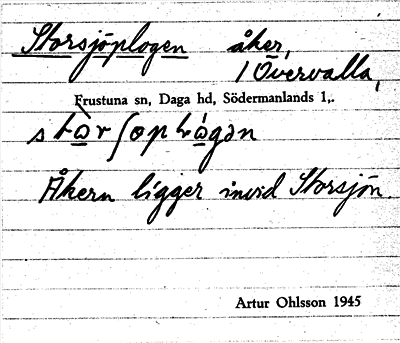 Storsjöplogen åker,
i Övervalla,
Frustuna sn, Daga hd, Södermanlands l,.
Åkern ligger invid Storsjön.
Artur Ohlsson 1945